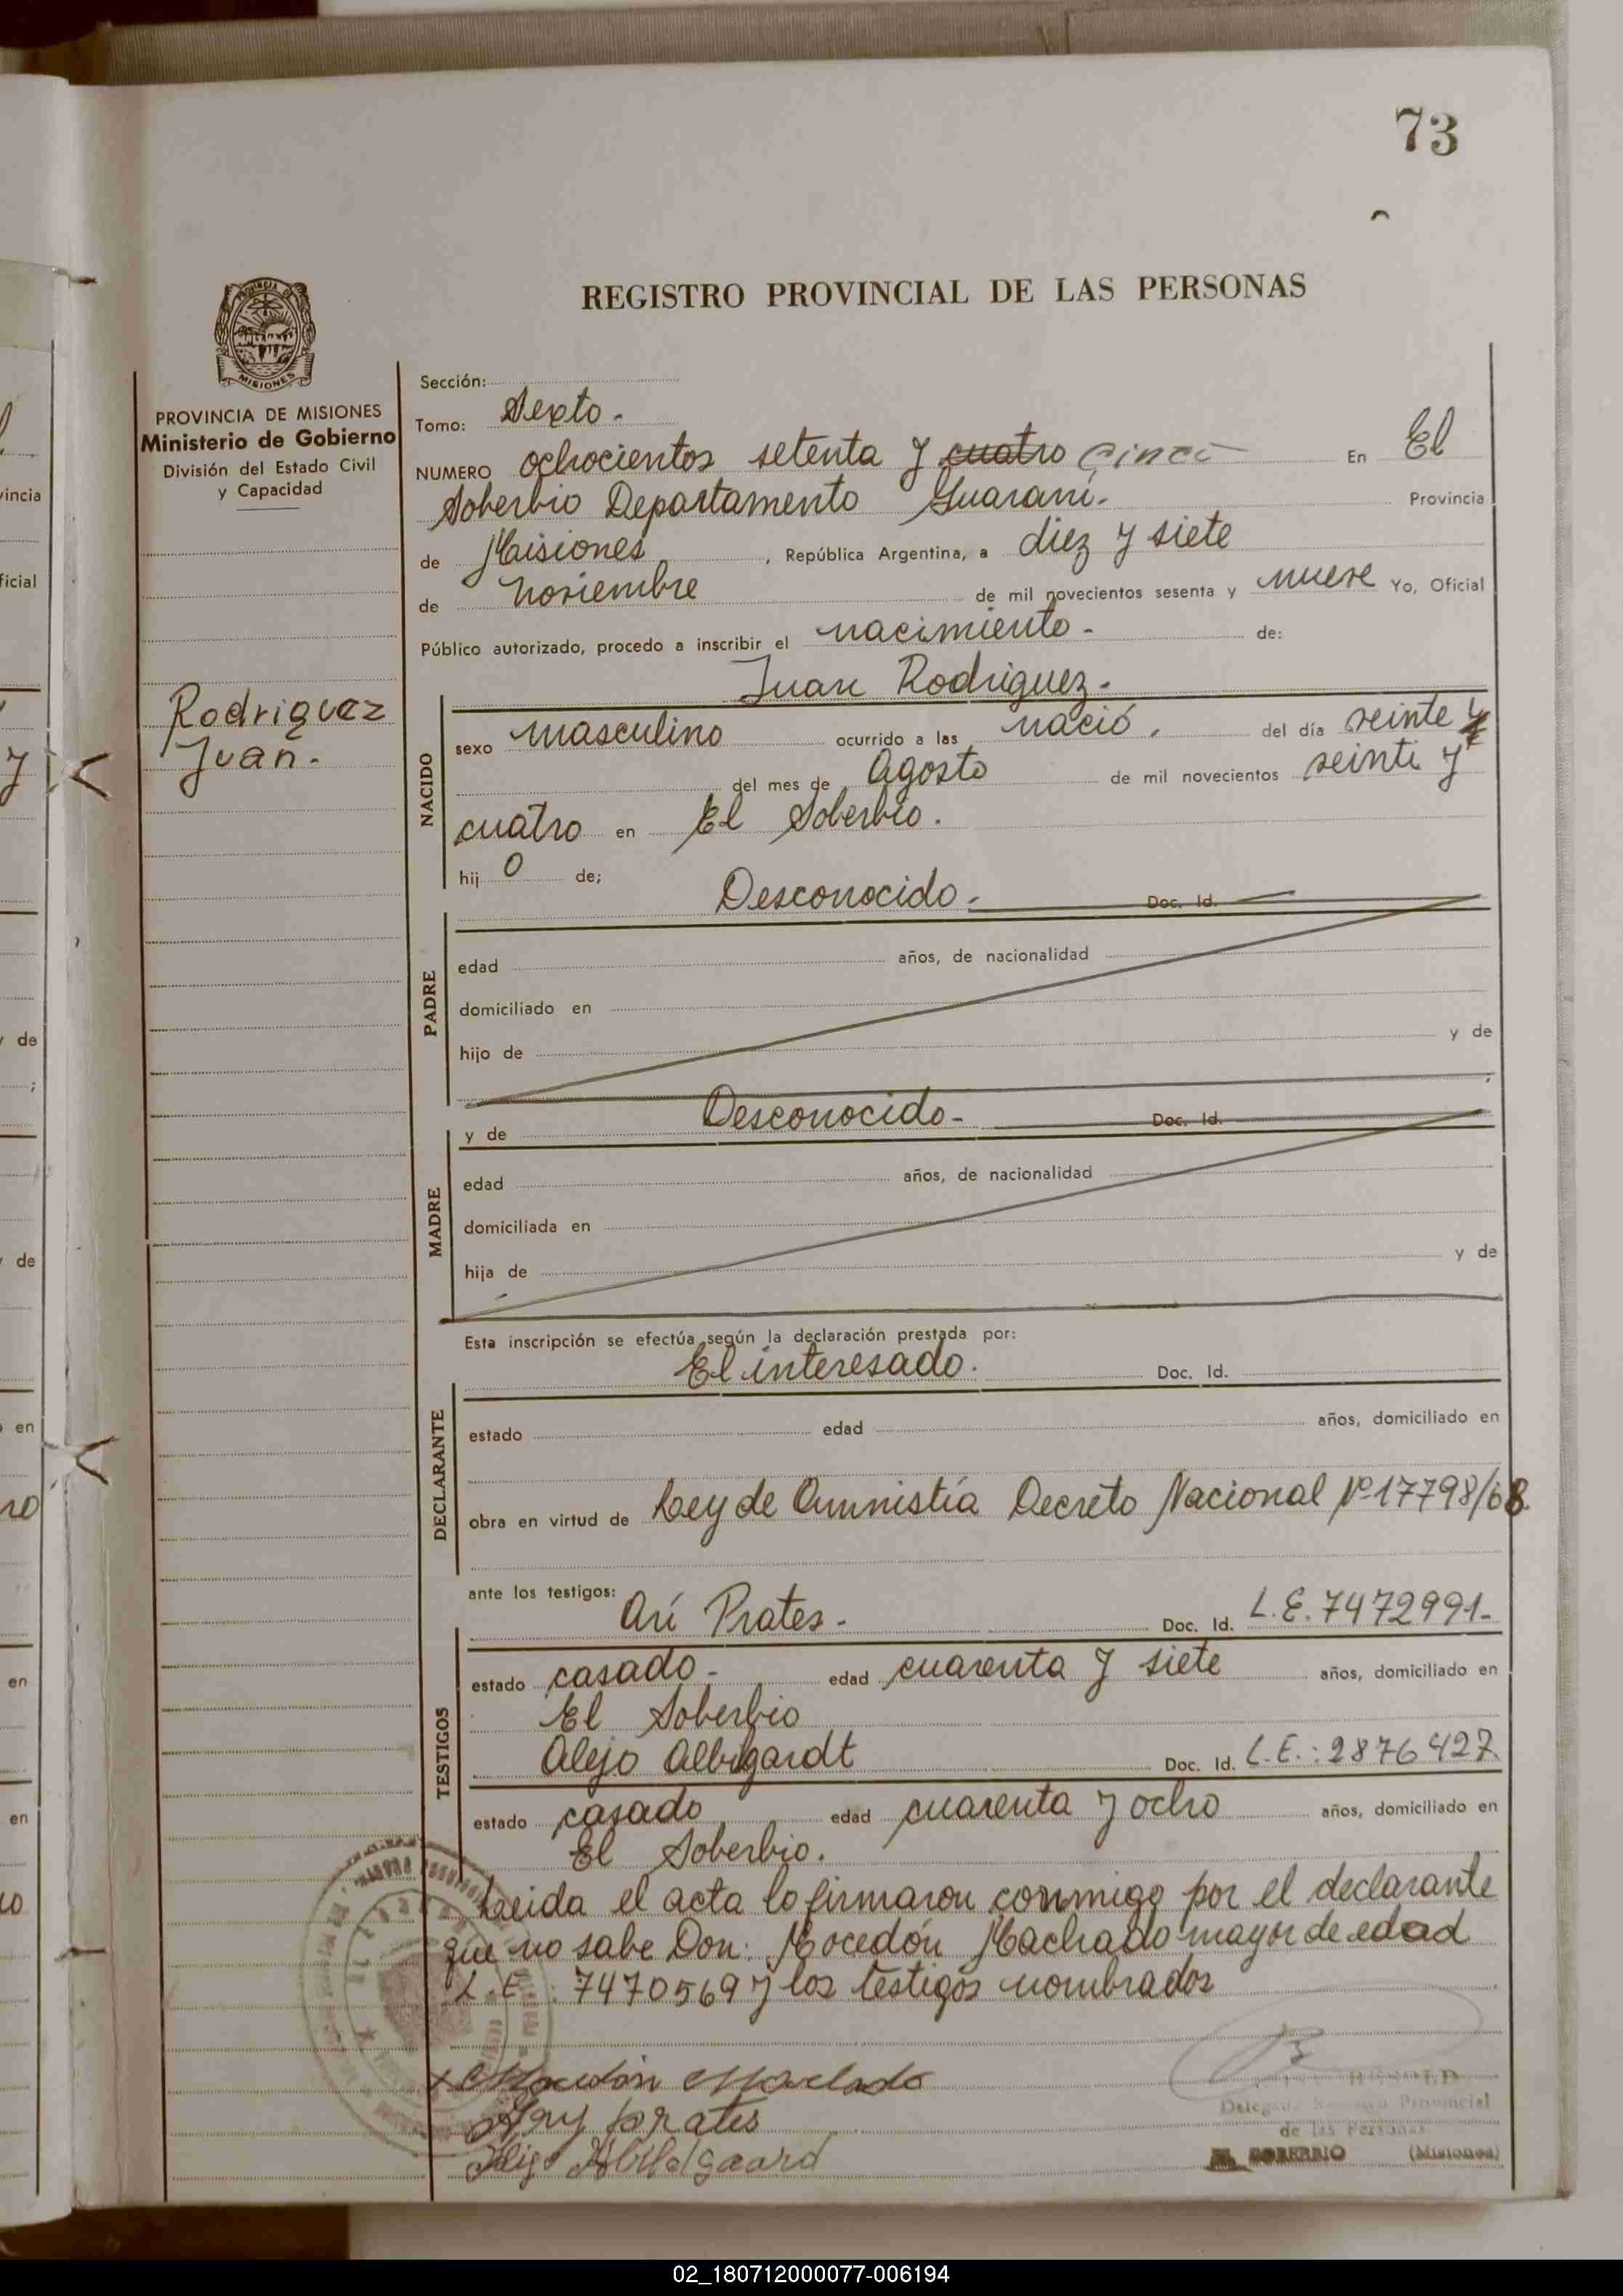 73
REGISTRO PROVINCIAL DE LAS PERSONAS
PROVINCIA DE MISIONES
Ministerio de Gobierno
División del Estado Civil
y Capacidad
Rodriguez
Juan.
Sección:
Tomo: Sexto.
NUMERO ochocientos setenta y cuatro cinco En El
Soberbio Departamento Guaraní. Provincia
de Misiones, República Argentina, a diez y siete
de noviembre de mil novecientos sesenta y nueve Yo, Oficial
Público autorizado, procedo a inscribir el nacimiento. de:
Juan Rodriguez.
NACIDO
sexo masculino ocurrido a las nació, del día veinte y
del mes de Agosto de mil novecientos veinti y
cuatro en El Soberbio.
hij o de;
PADRE
Desconocido. Doc. Id.
edad años, de nacionalidad
domiciliado en
hijo de y de
MADRE
y de Desconocido- Doc. Id.
edad años, de nacionalidad
domiciliada en
hija de y de
Esta inscripción se efectúa según la declaración prestada por:
El interesado. Doc. Id.
DECLARANTE
estado edad años, domiciliado en
obra en virtud de Ley de Amnistía Decreto Nacional Nº 17798/68.
TESTIGOS
ante los testigos:
Arí Prates. Doc. Id. L.E. 7472991-
estado casado- edad cuarenta y siete años, domiciliado en
El Soberbio
Alejo Albigardt Doc. Id. L.E.: 2876427.
estado casado edad cuarenta y ocho años, domiciliado en
El Soberbio.
Leida el acta lo firmaron conmigo por el declarante
que no sabe Don: Mocedón Machado mayor de edad
L.E.: 7470569 y los testigos nombrados
Mocedón Machado
Ary prates
Alejo Abildgaard
Provincial
de las Personas
EL SOBERBIO (Misiones)
02_180712000077-006194